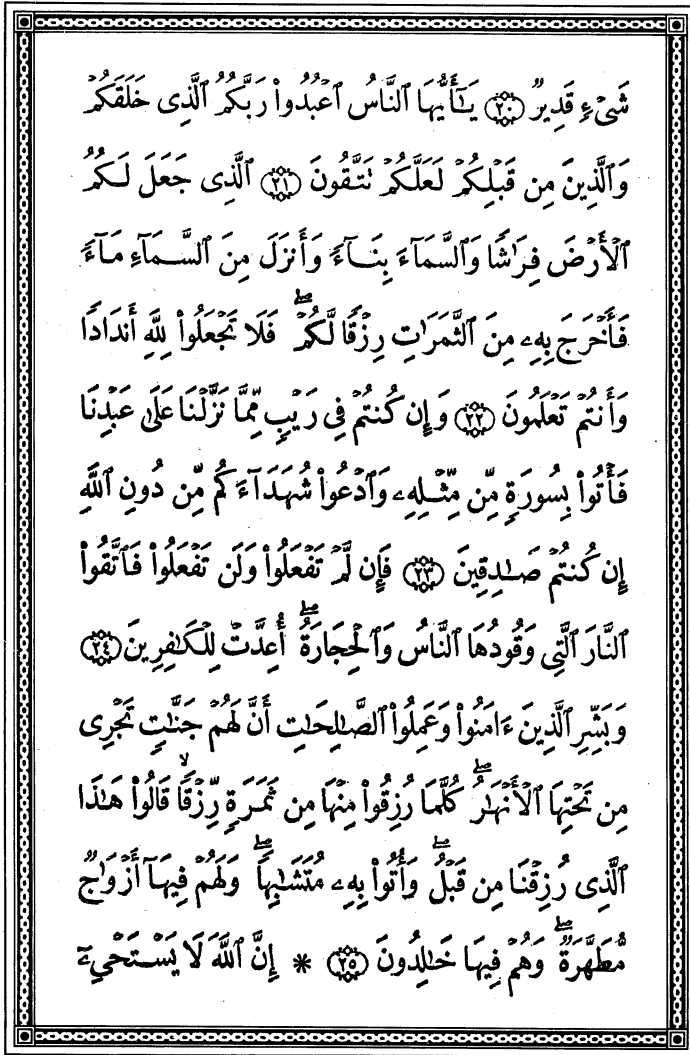 شَىۡءٍ قَدِيرٌ ﴿٢٠﴾ يَـٰٓأَيُّهَا ٱلنَّاسُ ٱعۡبُدُواْ رَبَّكُمُ ٱلَّذِى خَلَقَكُمۡ
وَٱلَّذِينَ مِن قَبۡلِكُمۡ لَعَلَّكُمۡ تَتَّقُونَ ﴿٢١﴾ ٱلَّذِى جَعَلَ لَكُمُ
ٱلۡأَرۡضَ فِرَٰشًا وَٱلسَّمَآءَ بِنَآءً وَأَنزَلَ مِنَ ٱلسَّمَآءِ مَآءً
فَأَخۡرَجَ بِهِۦ مِنَ ٱلثَّمَرَٰتِ رِزۡقًا لَّكُمۡۖ فَلَا تَجۡعَلُواْ لِلَّهِ أَندَادًا
وَأَنتُمۡ تَعۡلَمُونَ ﴿٢٢﴾ وَإِن كُنتُمۡ فِى رَيۡبٍ مِّمَّا نَزَّلۡنَا عَلَىٰ عَبۡدِنَا
فَأۡتُواْ بِسُورَةٍ مِّن مِّثۡلِهِۦ وَٱدۡعُواْ شُهَدَآءَكُم مِّن دُونِ ٱللَّهِ
إِن كُنتُمۡ صَـٰدِقِينَ ﴿٢٣﴾ فَإِن لَّمۡ تَفۡعَلُواْ وَلَن تَفۡعَلُواْ فَٱتَّقُواْ
ٱلنَّارَ ٱلَّتِى وَقُودُهَا ٱلنَّاسُ وَٱلۡحِجَارَةُۖ أُعِدَّتۡ لِلۡكَـٰفِرِينَ ﴿٢٤﴾
وَبَشِّرِ ٱلَّذِينَ ءَامَنُواْ وَعَمِلُواْ ٱلصَّـٰلِحَـٰتِ أَنَّ لَهُمۡ جَنَّـٰتٍ تَجۡرِى
مِن تَحۡتِهَا ٱلۡأَنۡهَـٰرُۖ كُلَّمَا رُزِقُواْ مِنۡهَا مِن ثَمَرَةٍ رِّزۡقًاۙ قَالُواْ هَـٰذَا
ٱلَّذِى رُزِقۡنَا مِن قَبۡلُۖ وَأُتُواْ بِهِۦ مُتَشَـٰبِهًاۖ وَلَهُمۡ فِيهَآ أَزۡوَٰجٌ
مُّطَهَّرَةٌۖ وَهُمۡ فِيهَا خَـٰلِدُونَ ﴿٢٥﴾ * إِنَّ ٱللَّهَ لَا يَسۡتَحۡىِۦٓ